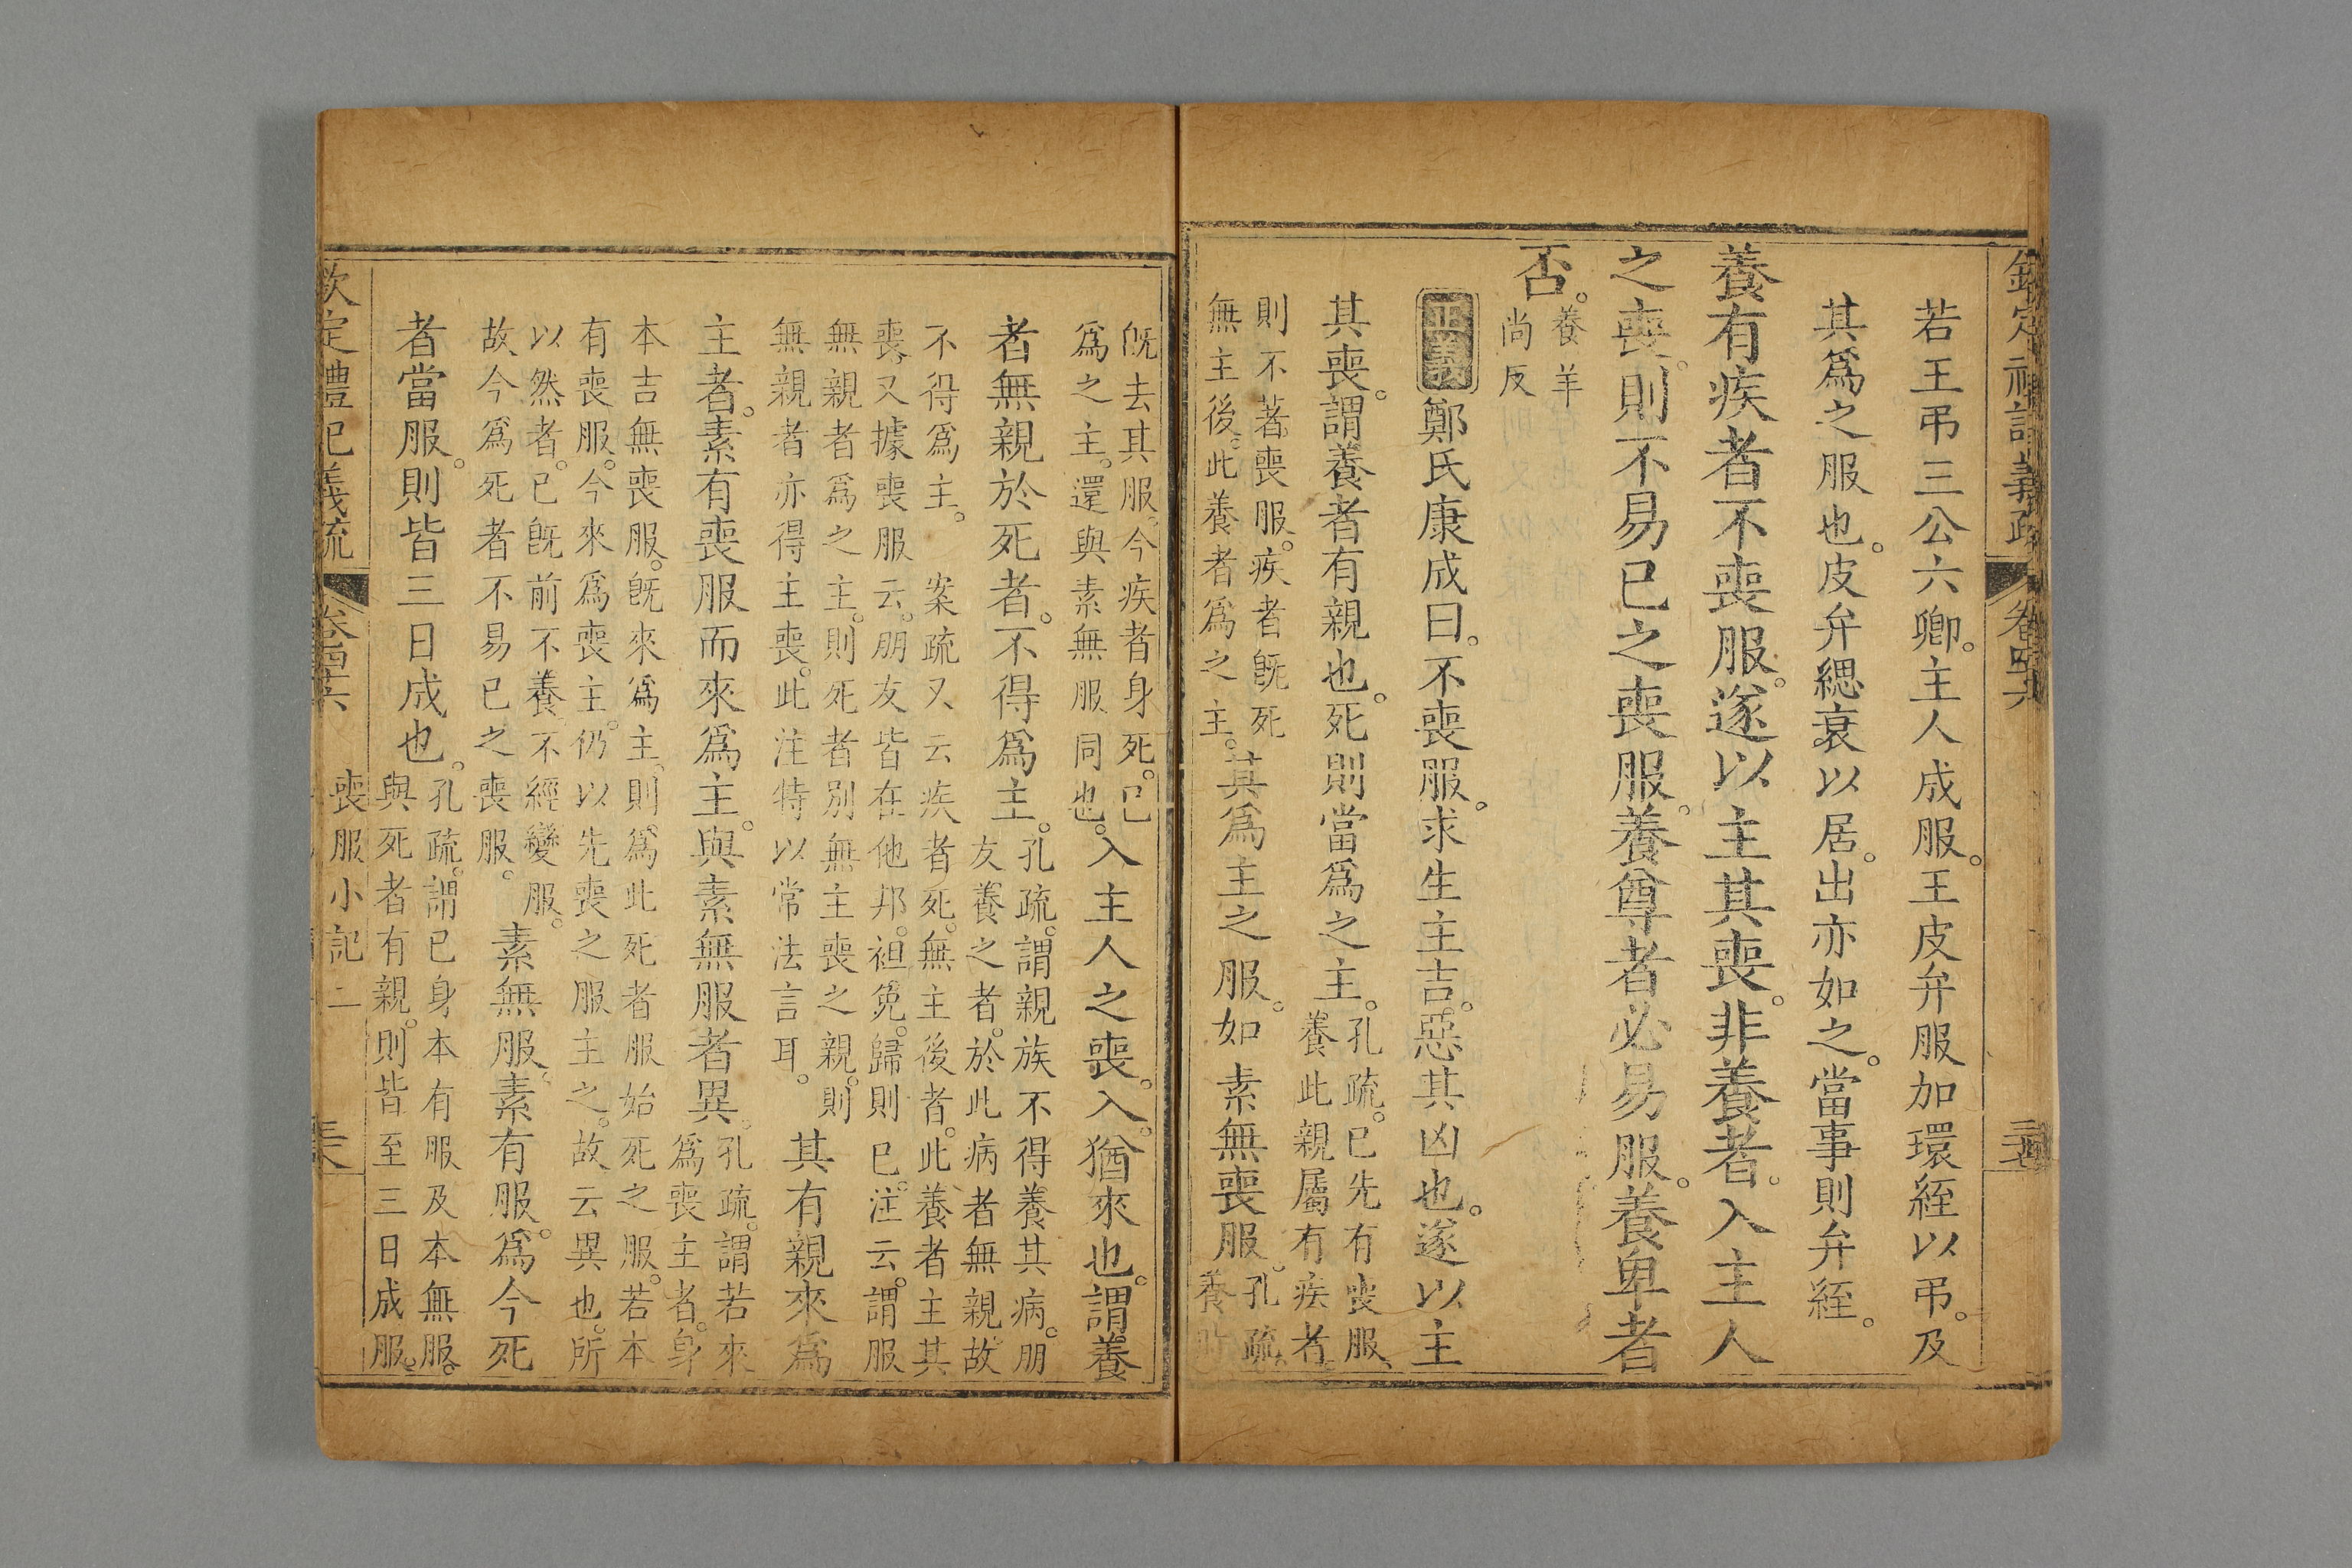 欽定禮記義疏 卷四十六
若王弔三公六卿。主人成服。王皮弁服加環絰以弔。及
其爲之服也。皮弁緦衰以居。出亦如之。當事則弁絰。
養有疾者不喪服。遂以主其喪。非養者。入主人
之喪。則不易已之喪服。養尊者必易服。養卑者
否。養羊
尚反
正義鄭氏康成曰。不喪服。求生主吉。惡其凶也。遂以主
其喪。謂養者有親也。死則當爲之主。孔疏。已先有喪服、
養此親屬有疾者。
則不著喪服。疾者旣死
無主後。此養者爲之主。其爲主之服。如素無喪服。孔疏。
養時
旣去其服。今疾者身死。已
爲之主。還與素無服同也。入主人之喪。入。猶來也。謂養
者無親於死者。不得爲主。孔疏。謂親族不得養其病。朋
友養之者。於此病者無親。故
不得爲主。 案疏又云疾者死。無主後者。此養者主其
喪。又據喪服云。朋友皆在他邦。袒免。歸則已。注云。謂服
無親者爲之主。則死者別無主喪之親。則
無親者亦得主喪。此注特以常法言耳。其有親來爲
主者。素有喪服而來爲主。與素無服者異。孔疏。謂若來
爲喪主者。身
本吉無喪服。旣來爲主。則爲此死者服始死之服。若本
有喪服。今來爲喪主。仍以先喪之服主之。故云異也。所
以然者。已旣前不養、不經變服。
故今爲死者不易已之喪服。素無服。素有服。爲今死
者當服。則皆三日成也。孔疏。謂已身本有服及本無服。
與死者有親。則皆至三日成服。
欽定禮記義疏 卷四十六 喪服小記二